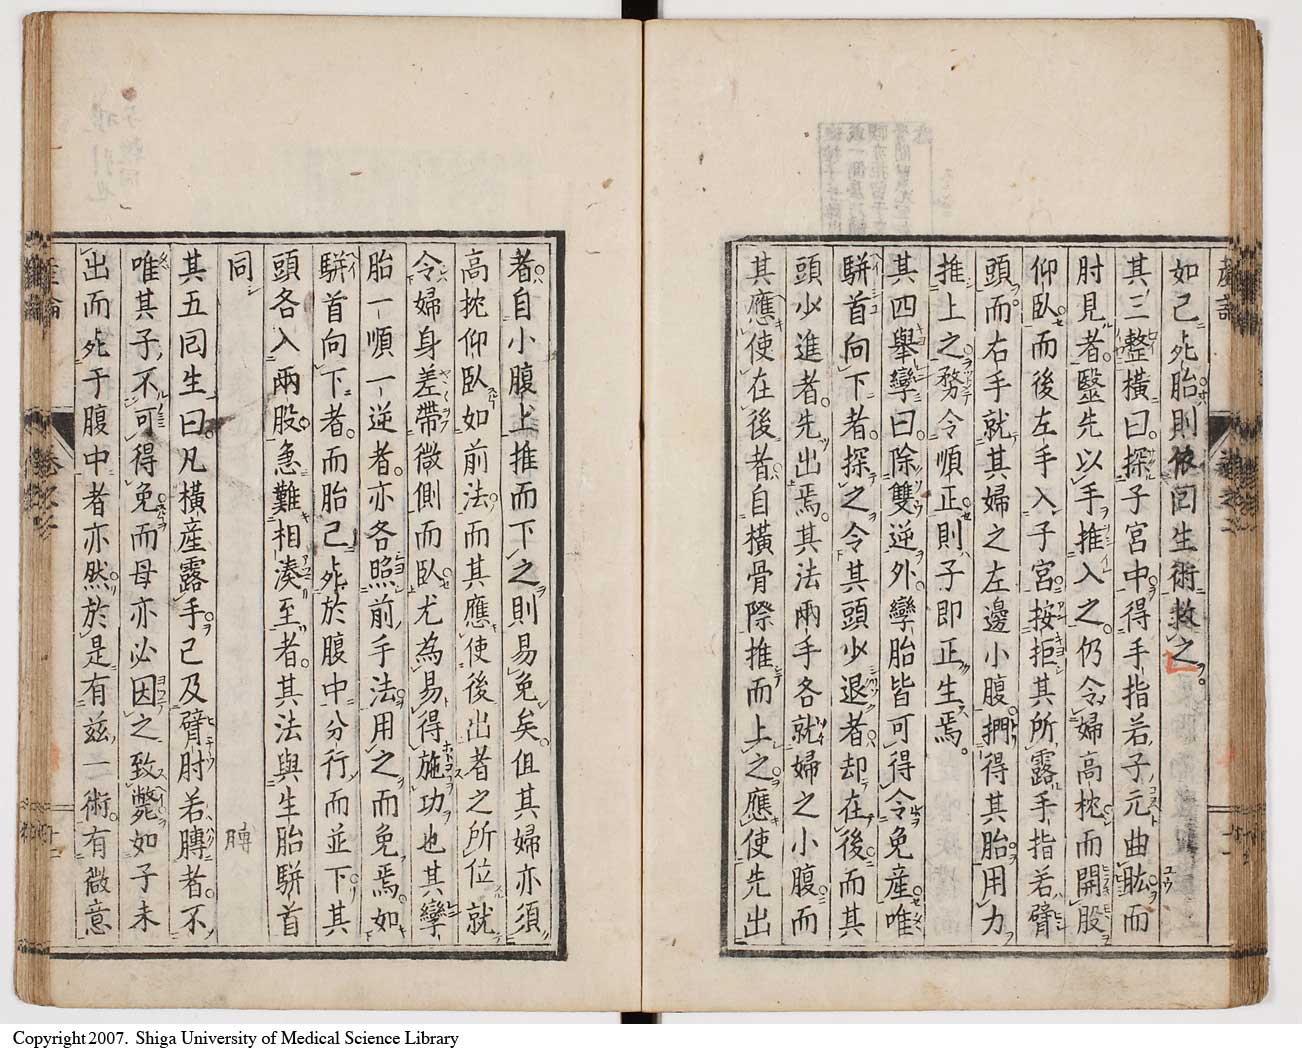 如己死胎則依回生術救之
其三整橫曰探子宮中得手指若子元曲肱而
肘見者毉先以手推入之仍令婦高枕而開股
仰臥而後左手入子宮按拒其所露手指若臂
頭而右手就其婦之左邊小腹捫得其胎用力
推上之務令順正則子即正生焉
其四舉孿曰除雙逆外孿胎皆可得令免產唯
駢首向下者探之令其頭少退者却在後而其
頭少進者先出焉其法兩手各就婦之小腹而
其應使在後者自橫骨際推而上之應使先出
者自小腹上推而下之則易免矣但其婦亦須
高枕仰臥如前法而其應使後出者之所位就
令婦身差帶微側而臥尤為易得施功也其孿
胎一順一逆者亦各照前手法用之而免焉如
駢首向下者而胎己死於腹中分行而並下其
頭各入兩股急難相湊至者其法與生胎駢首
同
其五回生曰凡橫產露手己及臂肘若膞者不
唯其子不可得免而母亦必因之致斃如子未
出而死于腹中者亦然於是有茲一術有微意
產論
卷之二
Copyright 2007. Shiga University of Medical Science Library